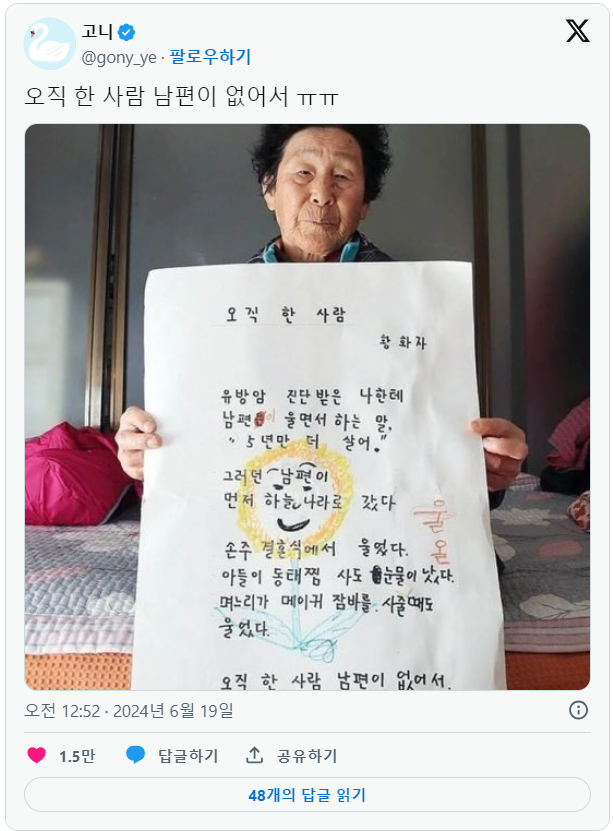 고니
@gony_ye · 팔로우하기
오직 한 사람 남편이 없어서 ㅠㅠ
오직 한 사람
황화자
유방암 진단받은 나한테
남편이 울면서 하는 말,
"5년만 더 살어."
그러던 남편이
먼저 하늘나라로 갔다
손주 결혼식에서 울었다.
아들이 동태찜 사도 눈물이 났다.
며느리가 메이커 잠바를 사줄 때도
울었다.
오직 한 사람 남편이 없어서.
오전 12:52 · 2024년 6월 19일
1.5만
답글하기
공유하기
48개의 답글 읽기